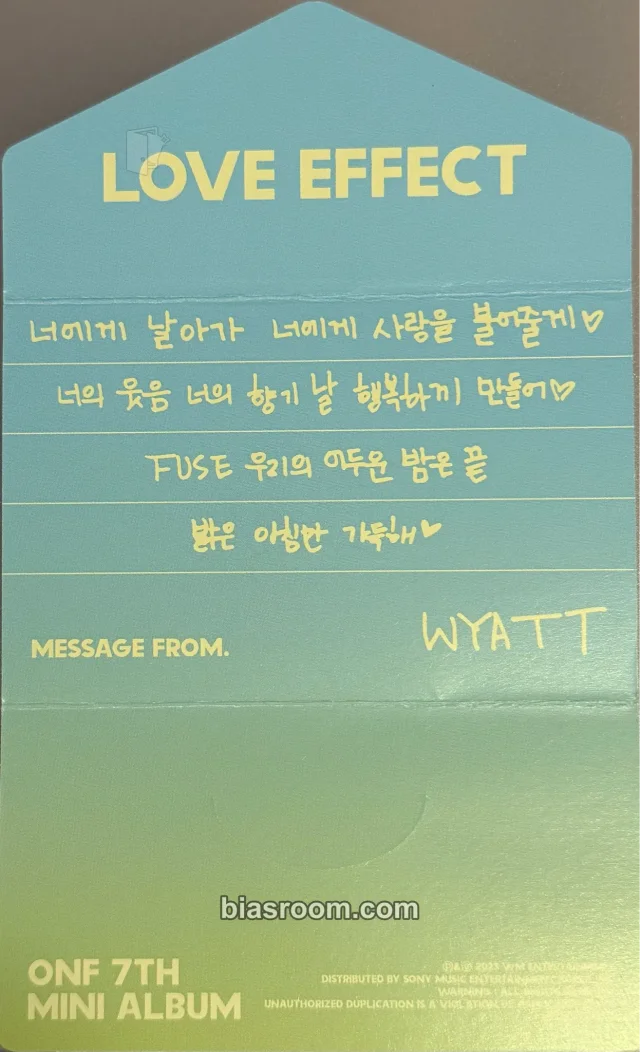 LOVE EFFECT
너에게 날아가 너에게 사랑을 불어줄게♡
너의 웃음 너의 향기 날 행복하게 만들어♡
FUSE 우리의 어두운 밤은 끝
밝은 아침만 가득해♥
MESSAGE FROM. WYATT
biasroom.com
ONF 7TH
MINI ALBUM
2023 WM ENTERTAINMENT
DISTRIBUTED BY SONY MUSIC ENTERTAINMENT
WARNING : ALL
UNAUTHORIZED DUPLICATION IS A VIOLATION OF